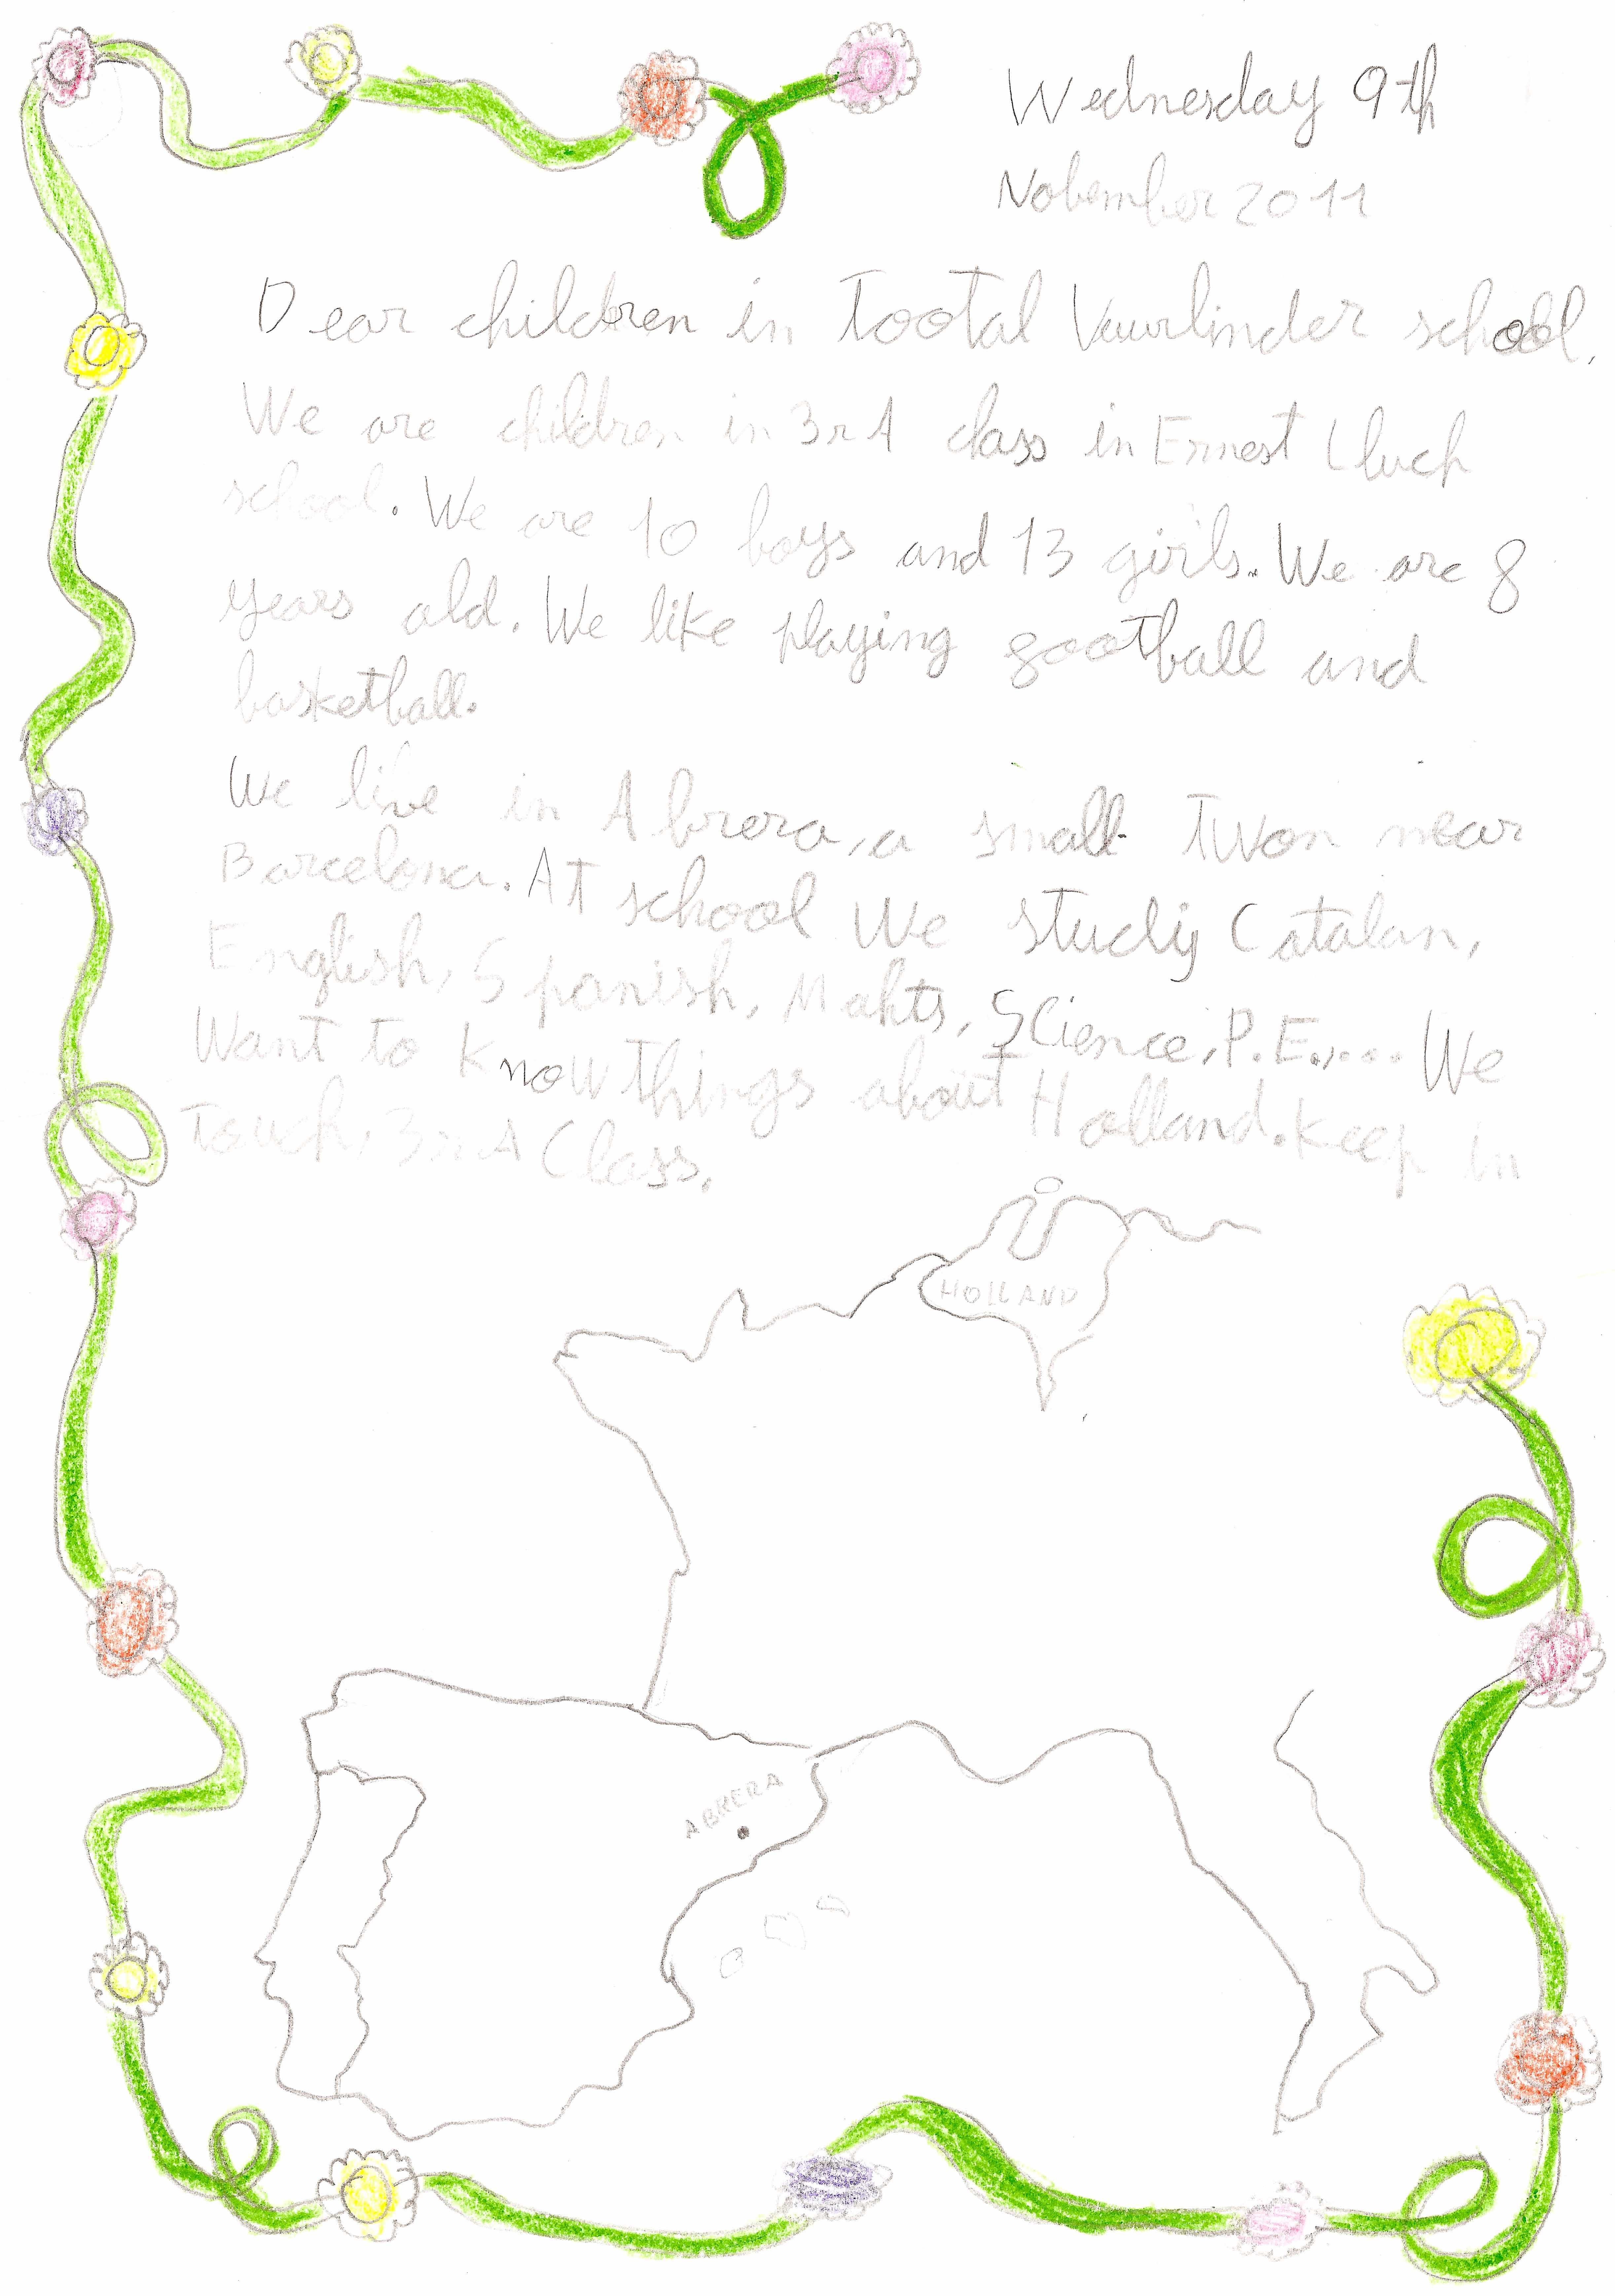 Wednesday 9th
Nobember 2011
Dear children in Tootal Vuurlinder school,
We are children in 3r A class in Ernest Lluch
school. We are 10 boys and 13 girls. We are 8
years old. We like playing football and
basketball.
We live in Abrera, a small twon near
Barcelona. At school We study Catalan,
English, Spanish, Mahts, Science, P.E.,... We
Want to Know things about Holland. Keep in
Touch, 3r A Class.
HOLLAND
ABRERA